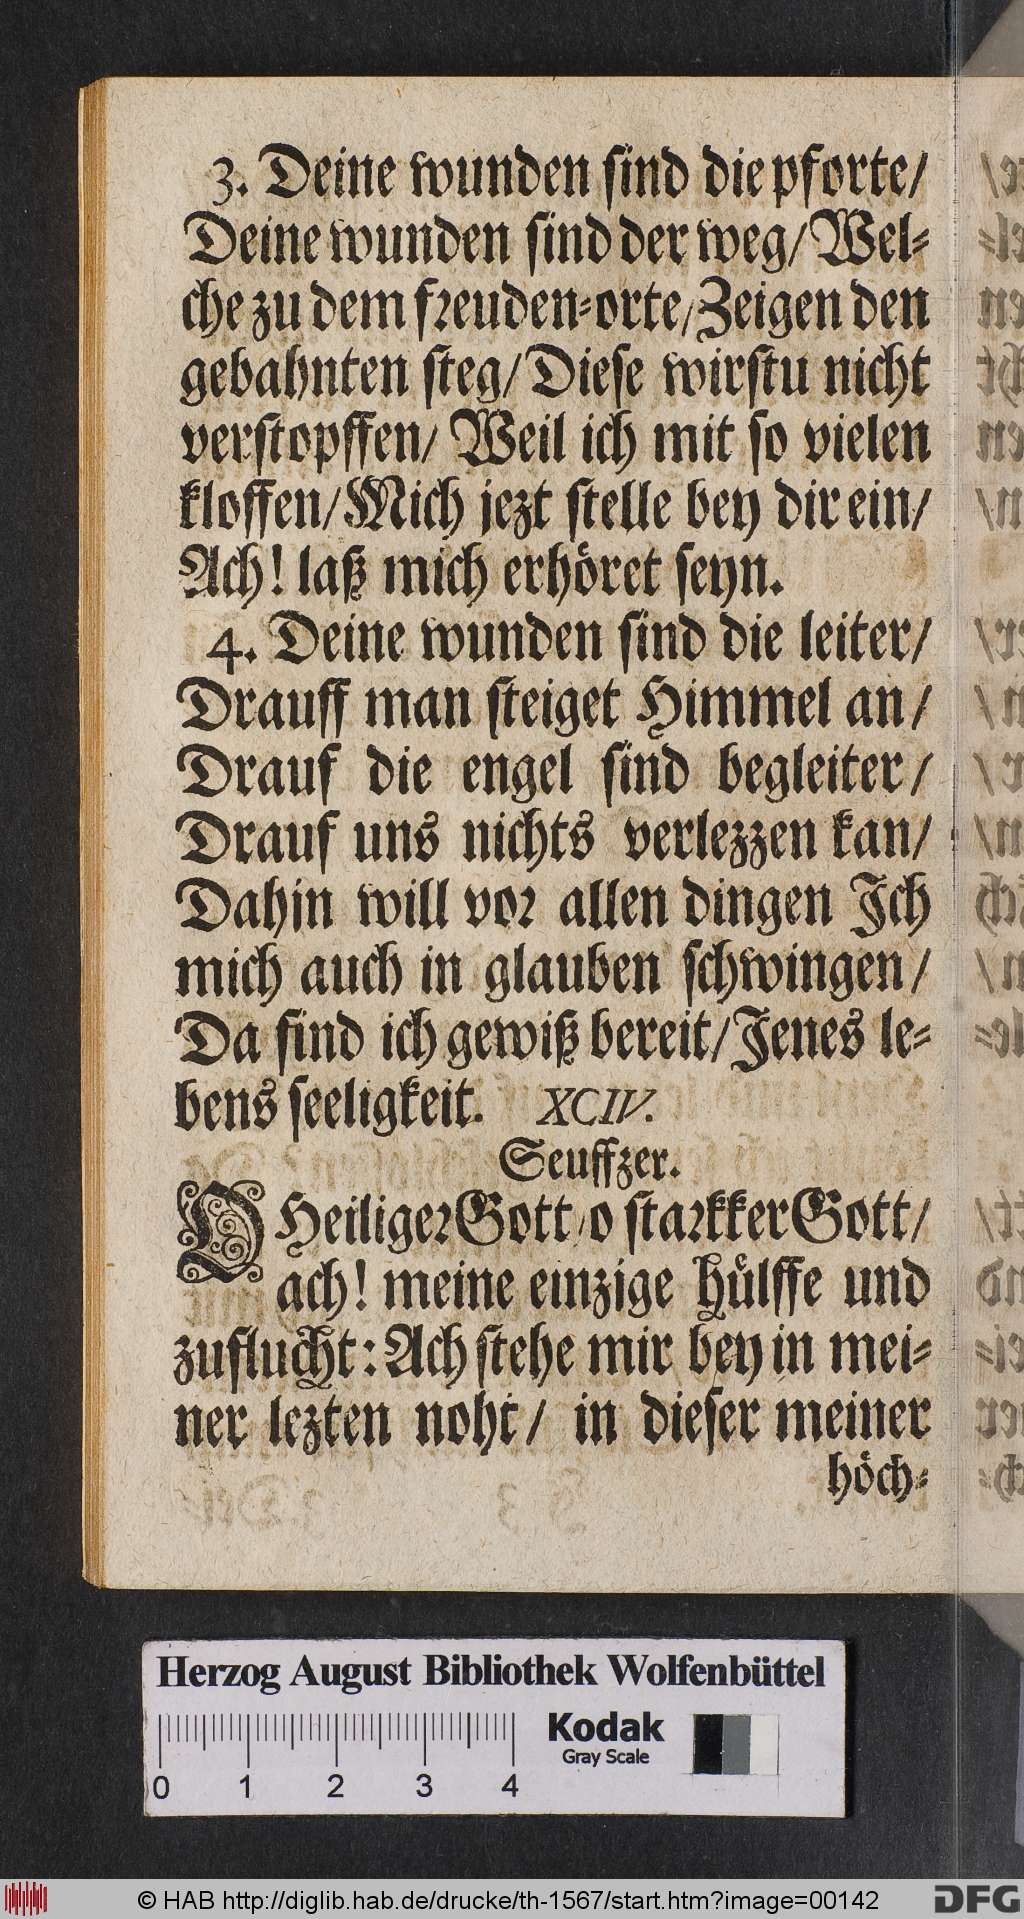 3. Deine wunden sind die pforte/
Deine wunden sind der weg/ Wel-
che zu dem freuden-orte/ Zeigen den
gebahnten steg/ Diese wirstu nicht
verstopffen/ Weil ich mit so vielen
kloffen/ Mich jezt stelle bey dir ein/
Ach! laß mich erhöret seyn.
4. Deine wunden sind die leiter/
Drauff man steiget Himmel an/
Drauf die engel sind begleiter/
Drauf uns nichts verlezzen kan/
Dahin will vor allen dingen Ich
mich auch in glauben schwingen/
Da find ich gewiß bereit/ Jenes le-
bens seeligkeit. XCIV.
Seuffzer.
O Heiliger Gott/ o starkker Gott/
ach! meine einzige hülffe und
zuflucht: Ach stehe mir bey in mei-
ner lezten noht/ in dieser meiner
höch-
Herzog August Bibliothek Wolfenbüttel
Kodak
Gray Scale
0 1 2 3 4
© HAB http://diglib.hab.de/drucke/th-1567/start.htm?image=00142
DFG